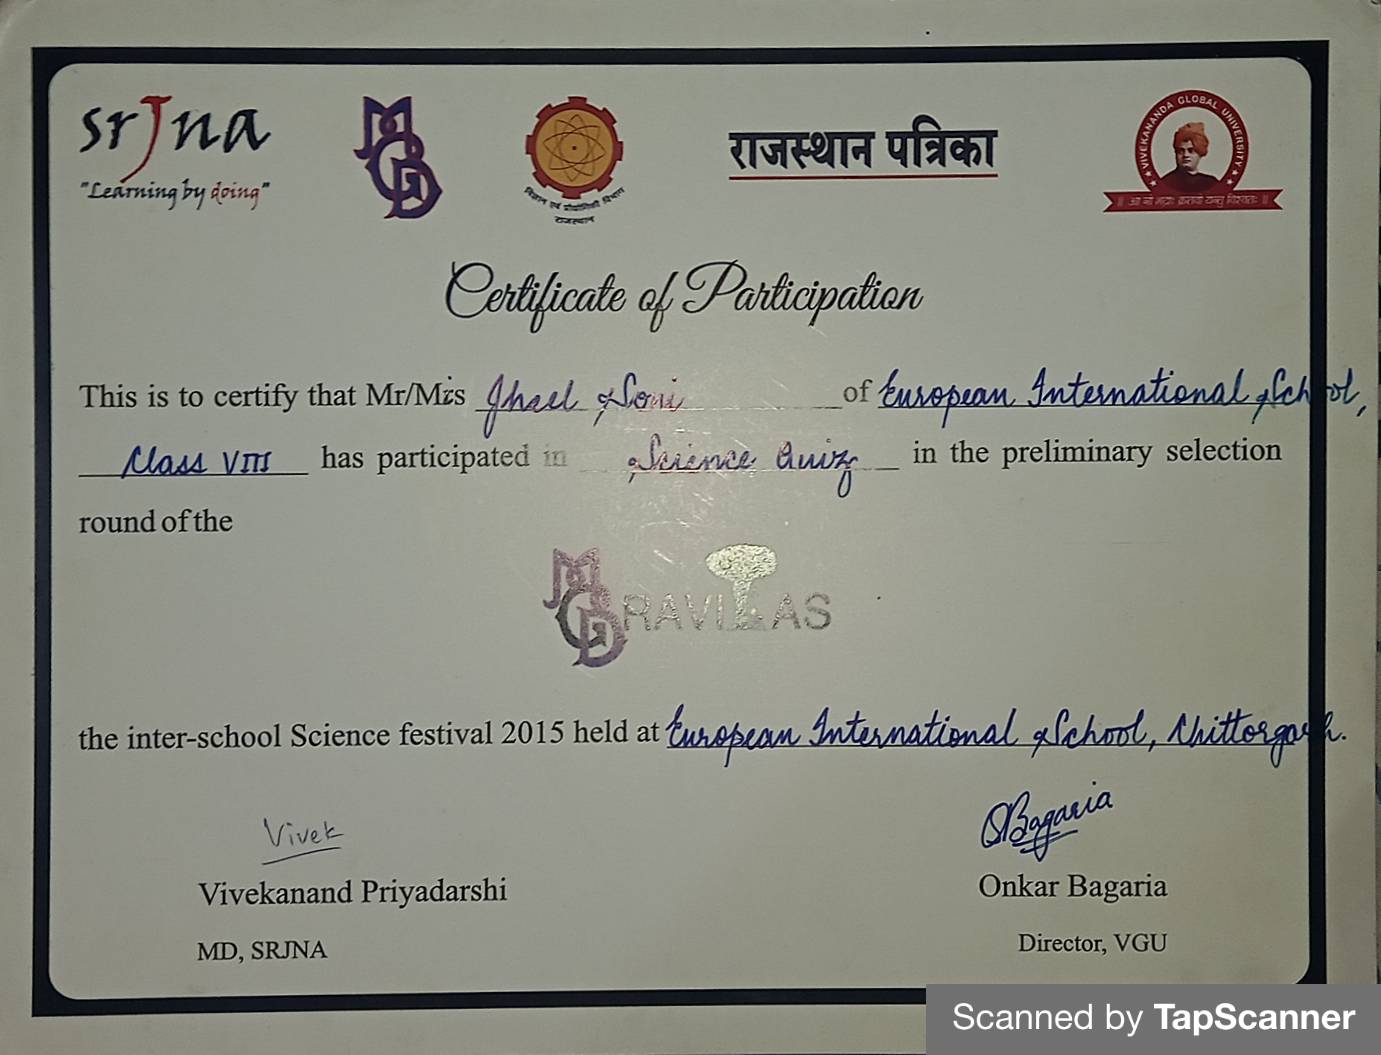 srJna
"Learning by doing"
MGD
विज्ञान एवं प्रौद्योगिकी विभाग
राजस्थान
राजस्थान पत्रिका
VIVEKANANDA GLOBAL UNIVERSITY
Certificate of Participation
This is to certify that Mr/Mrs Jhael Soni of European International School,
Class VIII has participated in Science Quiz in the preliminary selection
round of the
MGD GRAVITAS
the inter-school Science festival 2015 held at European International School, Chittorgarh.
Vivek
OBagaria
Vivekanand Priyadarshi
Onkar Bagaria
MD, SRJNA
Director, VGU
Scanned by TapScanner